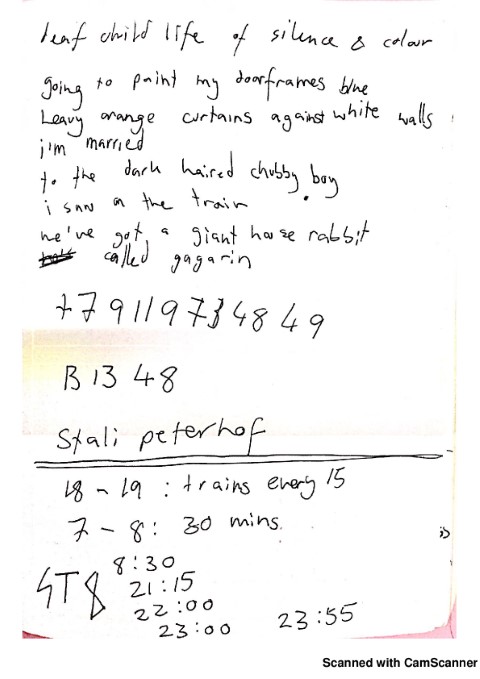 deaf child life of silence & colour
going to paint my doorframes blue
heavy orange curtains against white walls
i'm married
to the dark haired chubby boy
i saw on the train
we've got a giant house rabbit
called gagarin
+7 911 973 48 49
B 13 48
Stali peterhof
18 - 19 : trains every 15
7 - 8 : 30 mins.
8:30
ST8 21:15
22:00
23:00 23:55
Scanned with CamScanner